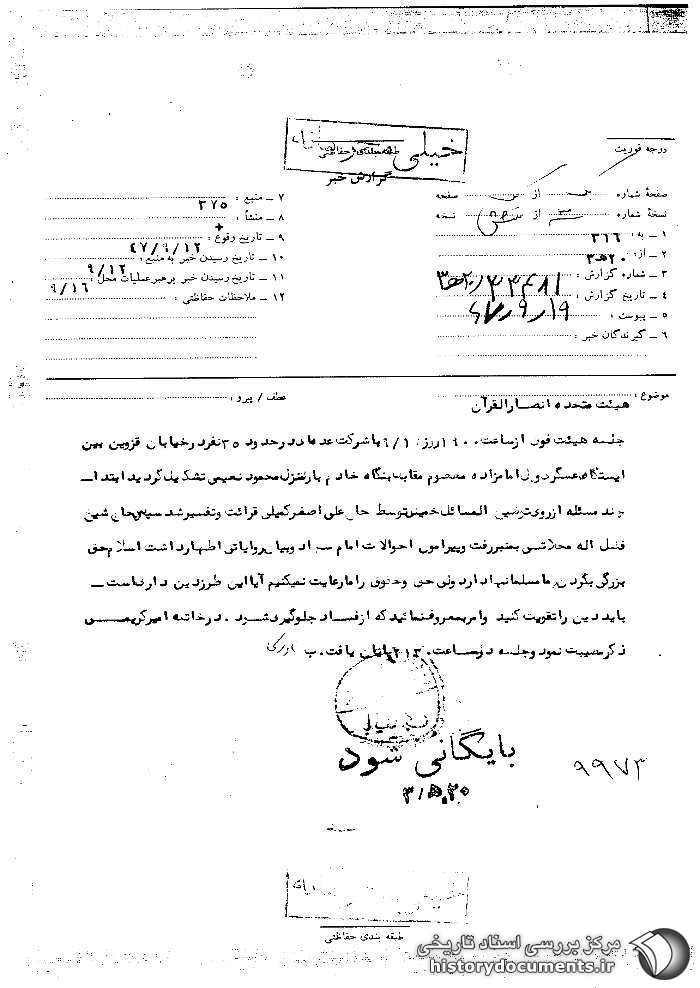 خیلی محرمانه
طبقه بندی حفاظتی
گزارش خبر
درجه فوریت
صفحهٔ شماره از صفحه
نسخهٔ شماره از نسخه
۱ ـ به : ۳۱۶
۲ ـ از : ۲۰ﻫ۳
۳ ـ شماره گزارش :
۴ ـ تاریخ گزارش : ۴۷/۹/۱۹
۵ ـ پیوست :
۶ ـ گیرندگان خبر :
۷ ـ منبع : ۳۷۵
۸ ـ منشأ :
۹ ـ تاریخ وقوع :
۱۰ ـ تاریخ رسیدن خبر به منبع :
۱۱ ـ تاریخ رسیدن خبر برهبر عملیات محل : ۹/۱۶
۱۲ ـ ملاحظات حفاظتی :
موضوع : هیئت متحده انصارالقرآن
عطف / پیرو :
جلسه هیئت فوق از ساعت روز با شرکت عده ای در حدود ۳۵ نفر در خیابان قزوین بین
ایستگاه عسگر و پل امامزاده معصوم مقابل بنگاه خادم یار منزل محمود نعیمی تشکیل گردید ابتدا
چند مسئله از روی توضیح المسائل خمینی توسط حاج علی اصغر کمیلی قرائت و تفسیر شد سپس حاج شیخ
فضل اله محلاتی بمنبر رفت و پیرامون احوالات امام سجاد و بیان روایاتی اظهار داشت اسلام حق
بزرگی بگردن ما مسلمانها دارد ولی حق و حقوق را ما رعایت نمیکنیم آیا این طرز دین داری است ـ
باید دین را تقویت کنید و امر بمعروف نمائید که از فساد جلوگیری شود . در خاتمه امیر کریمی
ذکر مصیبت نمود و جلسه در ساعت پایان یافت.
بایگانی شود
۹۹۷۳
طبقه بندی حفاظتی
مرکز بررسی اسناد تاریخی
historydocuments.ir